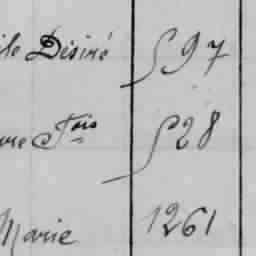 ile Désiré 597
rre Fois 528
Marie 1261